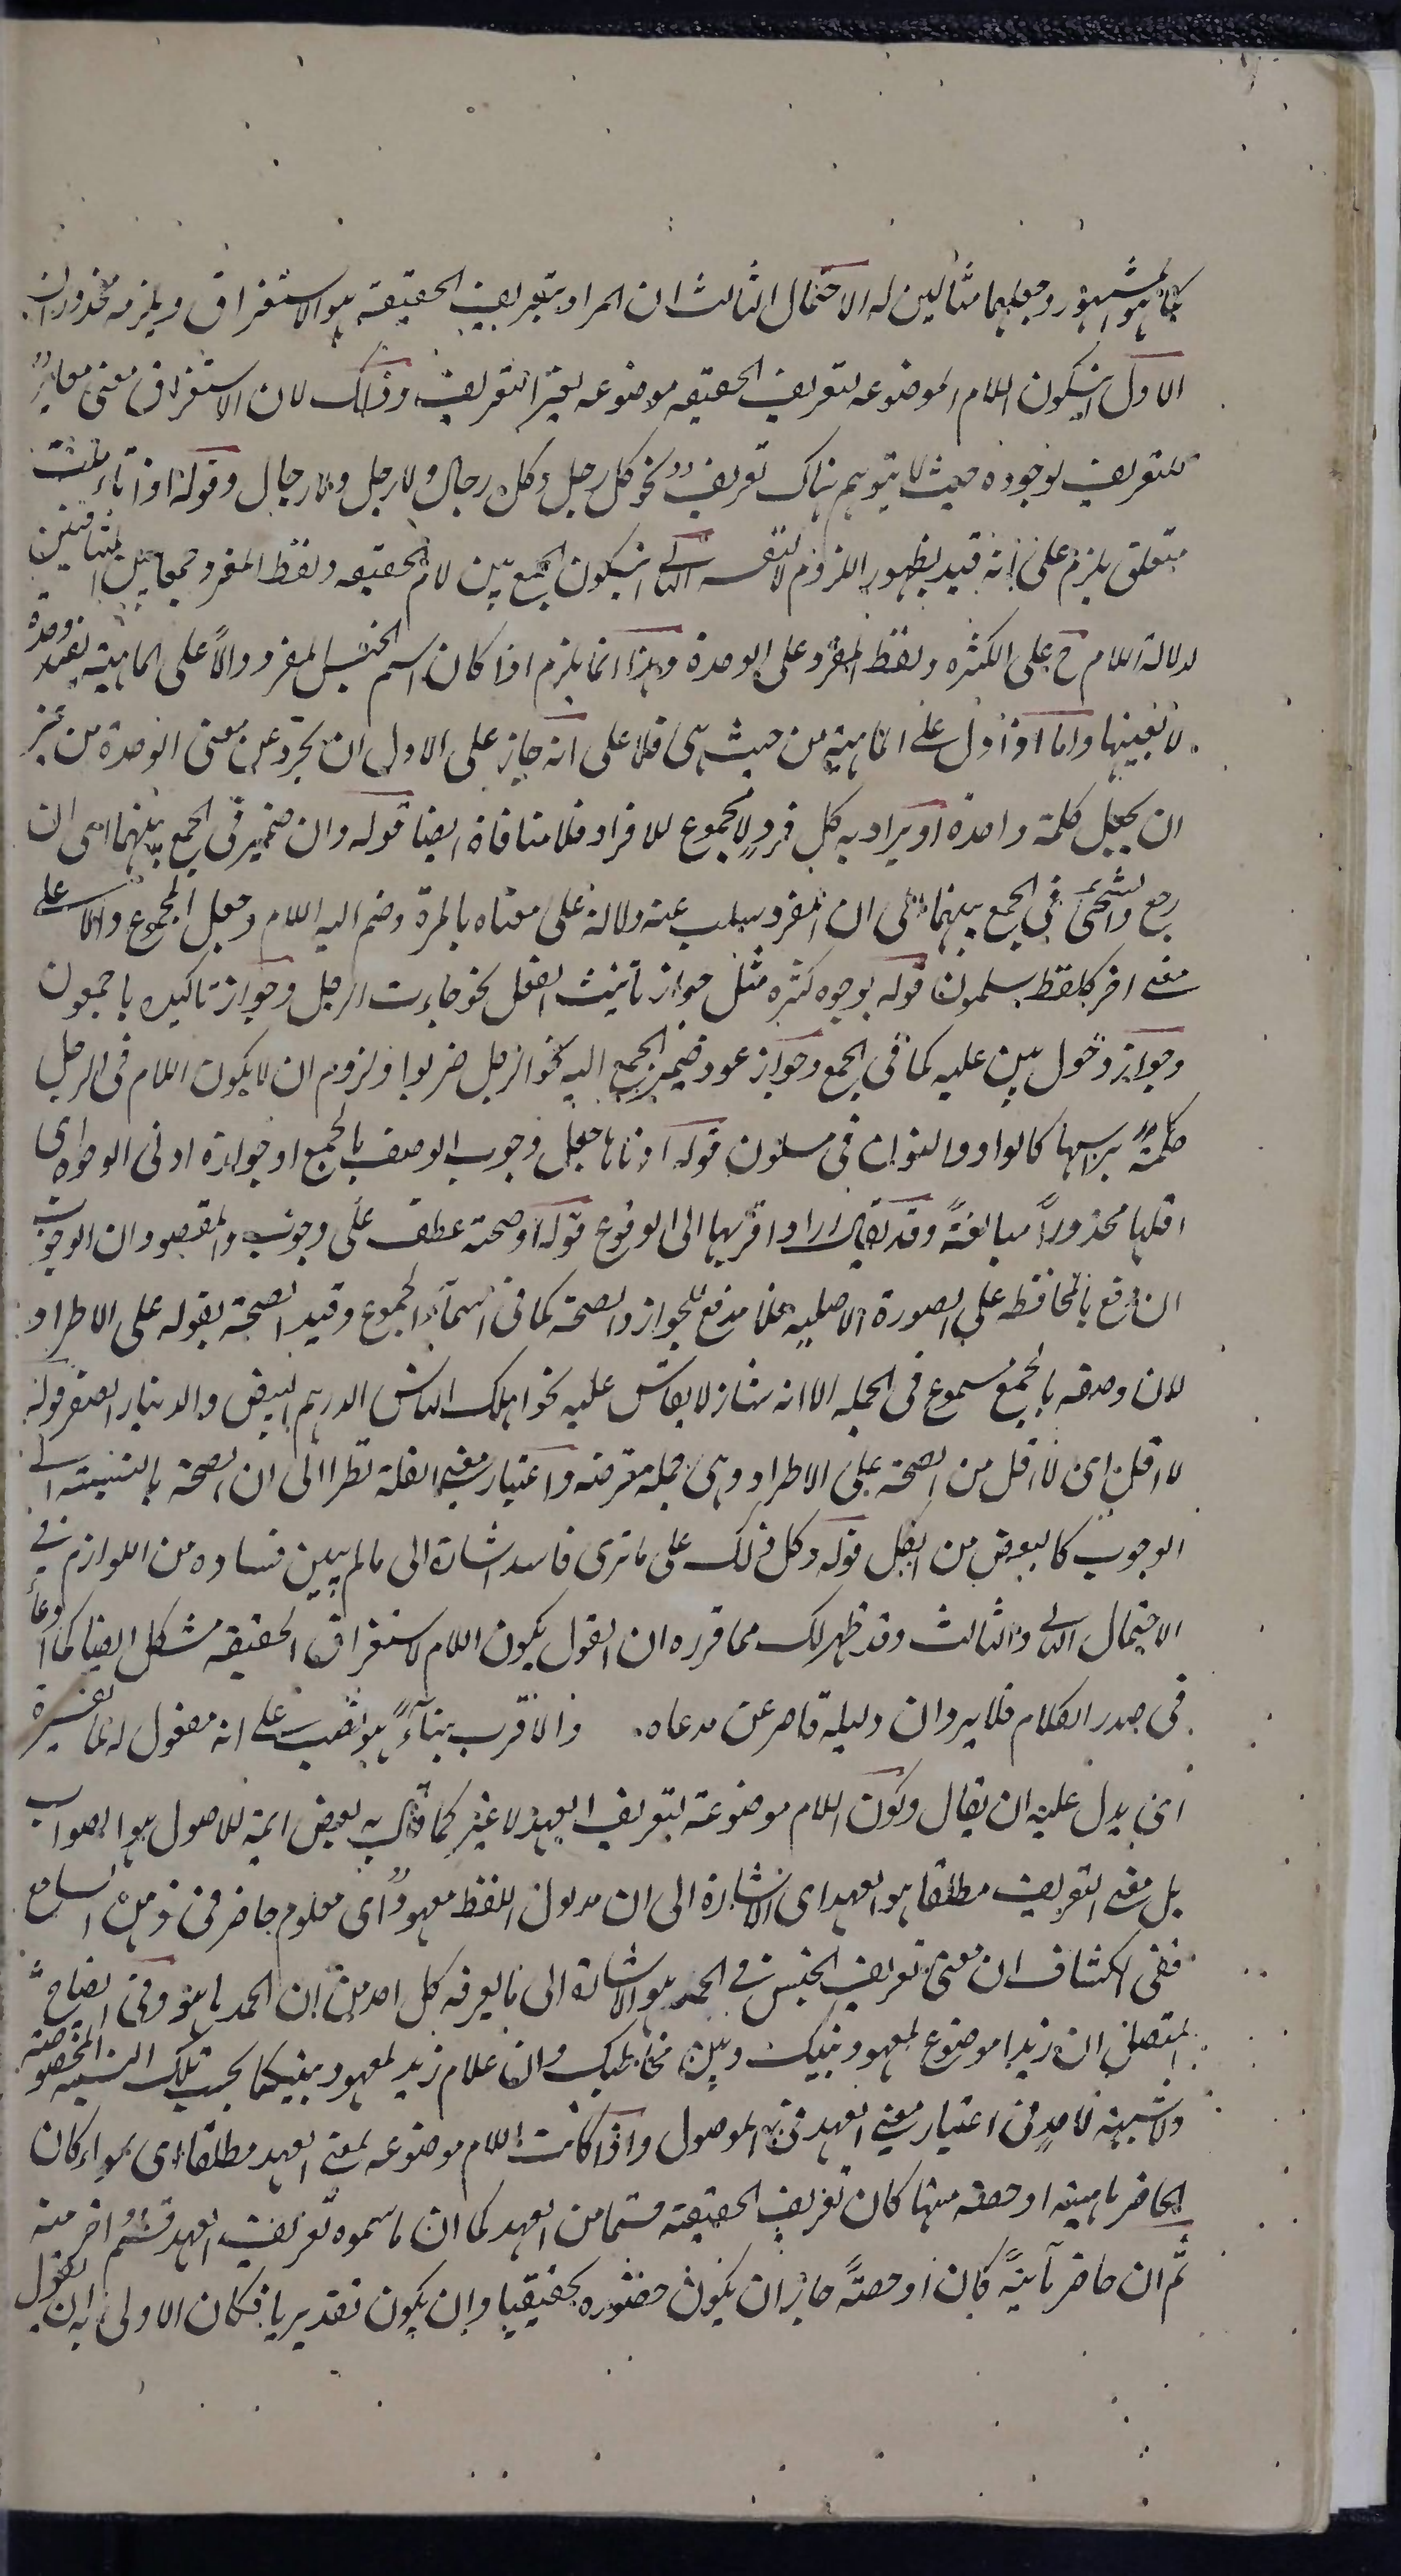 كما هو المشهور وجعلهما مثالين له الاحتمال الثالث ان المراد بتعريف الحقيقة هو الاستغراق ويلزمه محذوران
الاول ان يكون اللام الموضوعه لتعريف الحقيقه موضوعه لغير التعريف وذلك لان الاستغراق معنى مغاير
للتعريف لوجوده حيث لا يتوهم هناك تعريف نحو كل رجل وكل رجال ولا رجل ولا رجال وقوله اذا تاملت
متعلق بلزم على انه قيد لظهور اللزوم لا لنفسه الثاني ان يكون الجمع بين لام الحقيقه ولفظ المفرد جمعا بين المتنافيين
لدلالة اللام ح على الكثره ولفظ المفرد على الوحدة وهذا انما يلزم اذا كان اسم الجنس المفرد دالا على الماهية بقيد وحدة
لا بعينها واما اذا دل على الماهية من حيث هى فلا على انه جاز على الاول ان يجرد عن معنى الوحدة من غير
ان يجعل كلمة واحدة او يراد به كل فرد لا مجموع الافراد فلا منافاة ايضا قوله وان ضمير فى الجمع بينهما اى ان
رجع والتجئ فى الجمع بينهما الى ان المفرد سلب عنه دلالة على معناه بالمرة وضم اليه اللام وجعل المجموع دالا على
معنى اخر كلفظ مسلمون قوله بوجوه كثيره مثل جواز تانيث الفعل نحو جاءت الرجل وجواز تاكيده باجمعون
وجواز دخول بين عليه كما فى الجمع وجواز عود ضمير الجمع اليه نحو الرجل ضربوا ولزوم ان لا يكون اللام فى الرجل
كلمة براسها كالواو والنون فى مسلمون قوله ادناها جعل وجوب الوصف بالجمع او جوازه ادنى الوجوه اى
اقلها محذورا مبالغة وقد يقال اراد اقربها الى الوقوع قوله او صحته عطف على وجوب والمقصود ان الوجوب
ان دفع بالمحافظه على الصورة الاصليه فلا مدفع للجواز والصحة كما فى اسماء الجموع وقيد الصحة بقوله على الاطراد
لان وصفه بالجمع مسموع فى الجمله الا انه شاذ لا يقاس عليه نحو اهلك الناس الدرهم البيض والدينار الصفر قوله
لا اقل اى لا اقل من الصحة على الاطراد وهى جملة معترضه واعتبار معنى القلة نظرا الى ان الصحة بالنسبة الى
الوجوب كالبعض من الكل قوله وكل ذلك على ما ترى فاسد اشارة الى ما لم يبين فساده من اللوازم فى
الاحتمال الثانى والثالث وقد ظهر لك مما قرره ان القول بكون اللام لاستغراق الحقيقه مشكل ايضا كما ادعاه
فى صدر الكلام فلا يرد ان دليله قاصر عن مدعاه. والاقرب بناء هو نصب على انه مفعول له لما يفسره
اى يدل عليه ان يقال وكون اللام موضوعة لتعريف العهد لا غير كما قال به بعض ائمة الاصول هو الصواب
بل معنى التعريف مطلقا هو العهد اى الاشارة الى ان مدلول اللفظ معهود اى معلوم حاضر فى ذهن السامع
ففى الكشاف ان معنى تعريف الجنس فى الحمد هو الاشارة الى ما يعرفه كل احد من ان الحمد ما هو وفى ايضاح
المفصل ان زيدا موضوع لمعهود بينك وبين مخاطبك وان غلام زيد لمعهود بينكما بحسب تلك النسبه المخصوصة
ولا شبهة لاحد فى اعتبار معنى العهد فى الموصول واذا كانت اللام موضوعه لمعنى العهد مطلقا اى سواء كان
الحاضر ماهية او حصة منها كان تعريف الحقيقة قسما من العهد كما ان ما سموه تعريف العهد قسم اخر منه
ثم ان حاضر ماهية كان او حصة جاز ان يكون حضوره تحقيقيا وان يكون تقديريا فكان الاولى به ان يقول